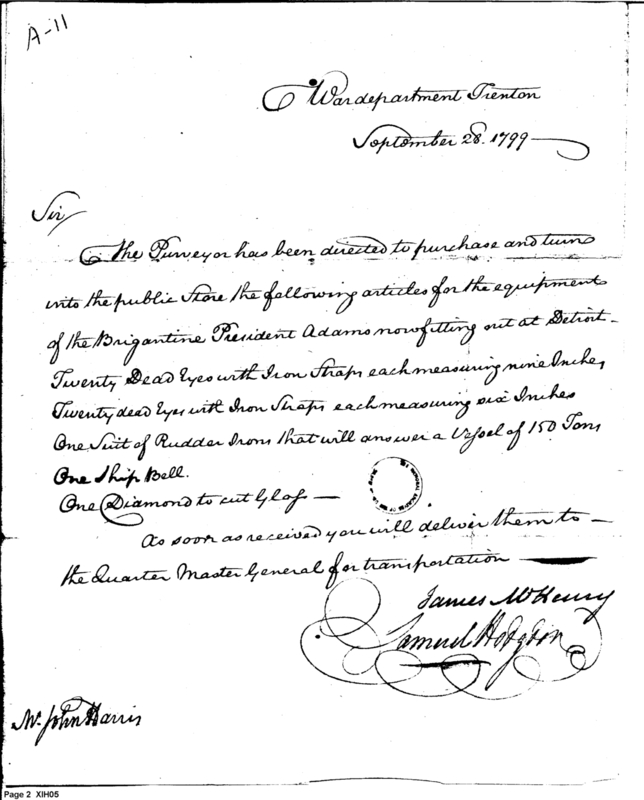 A-11
War department Trenton
September 28. 1799
Sir
The Purveyor has been directed to purchase and turn
into the public Store the following articles for the equipment
of the Brigantine President Adams now fitting out at Detroit
Twenty Dead Eyes with Iron Straps each measuring nine Inches
Twenty dead Eyes with Iron Straps each measuring six Inches
One Suit of Rudder Irons that will answer a Vessel of 150 Tons
One Ship Bell.
One Diamond to cut Glass
As soon as received you will deliver them to
the Quarter Master General for transportation
James McHenry
Samuel Hodgdon
Mr. John Harris
Page 2 XIH05